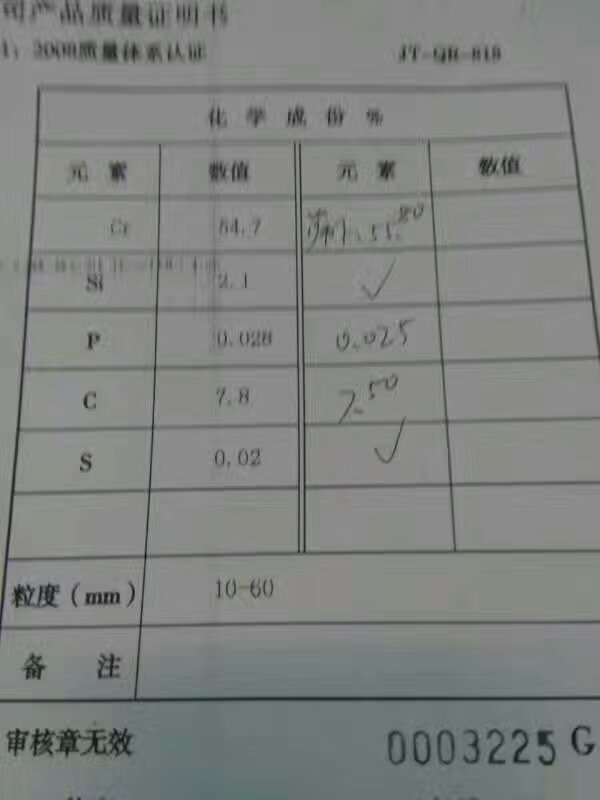 司产品质量证明书
1：2008质量体系认证 JT-QR-818
化 学 成 份 %
元 素 数值 元 素 数值
Cr 54.7 55.80
Si 2.1 ✓
P 0.028 0.025
C 7.8 7.50
S 0.02 ✓
粒度（mm） 10-60
备 注
审核章无效 0003225 G